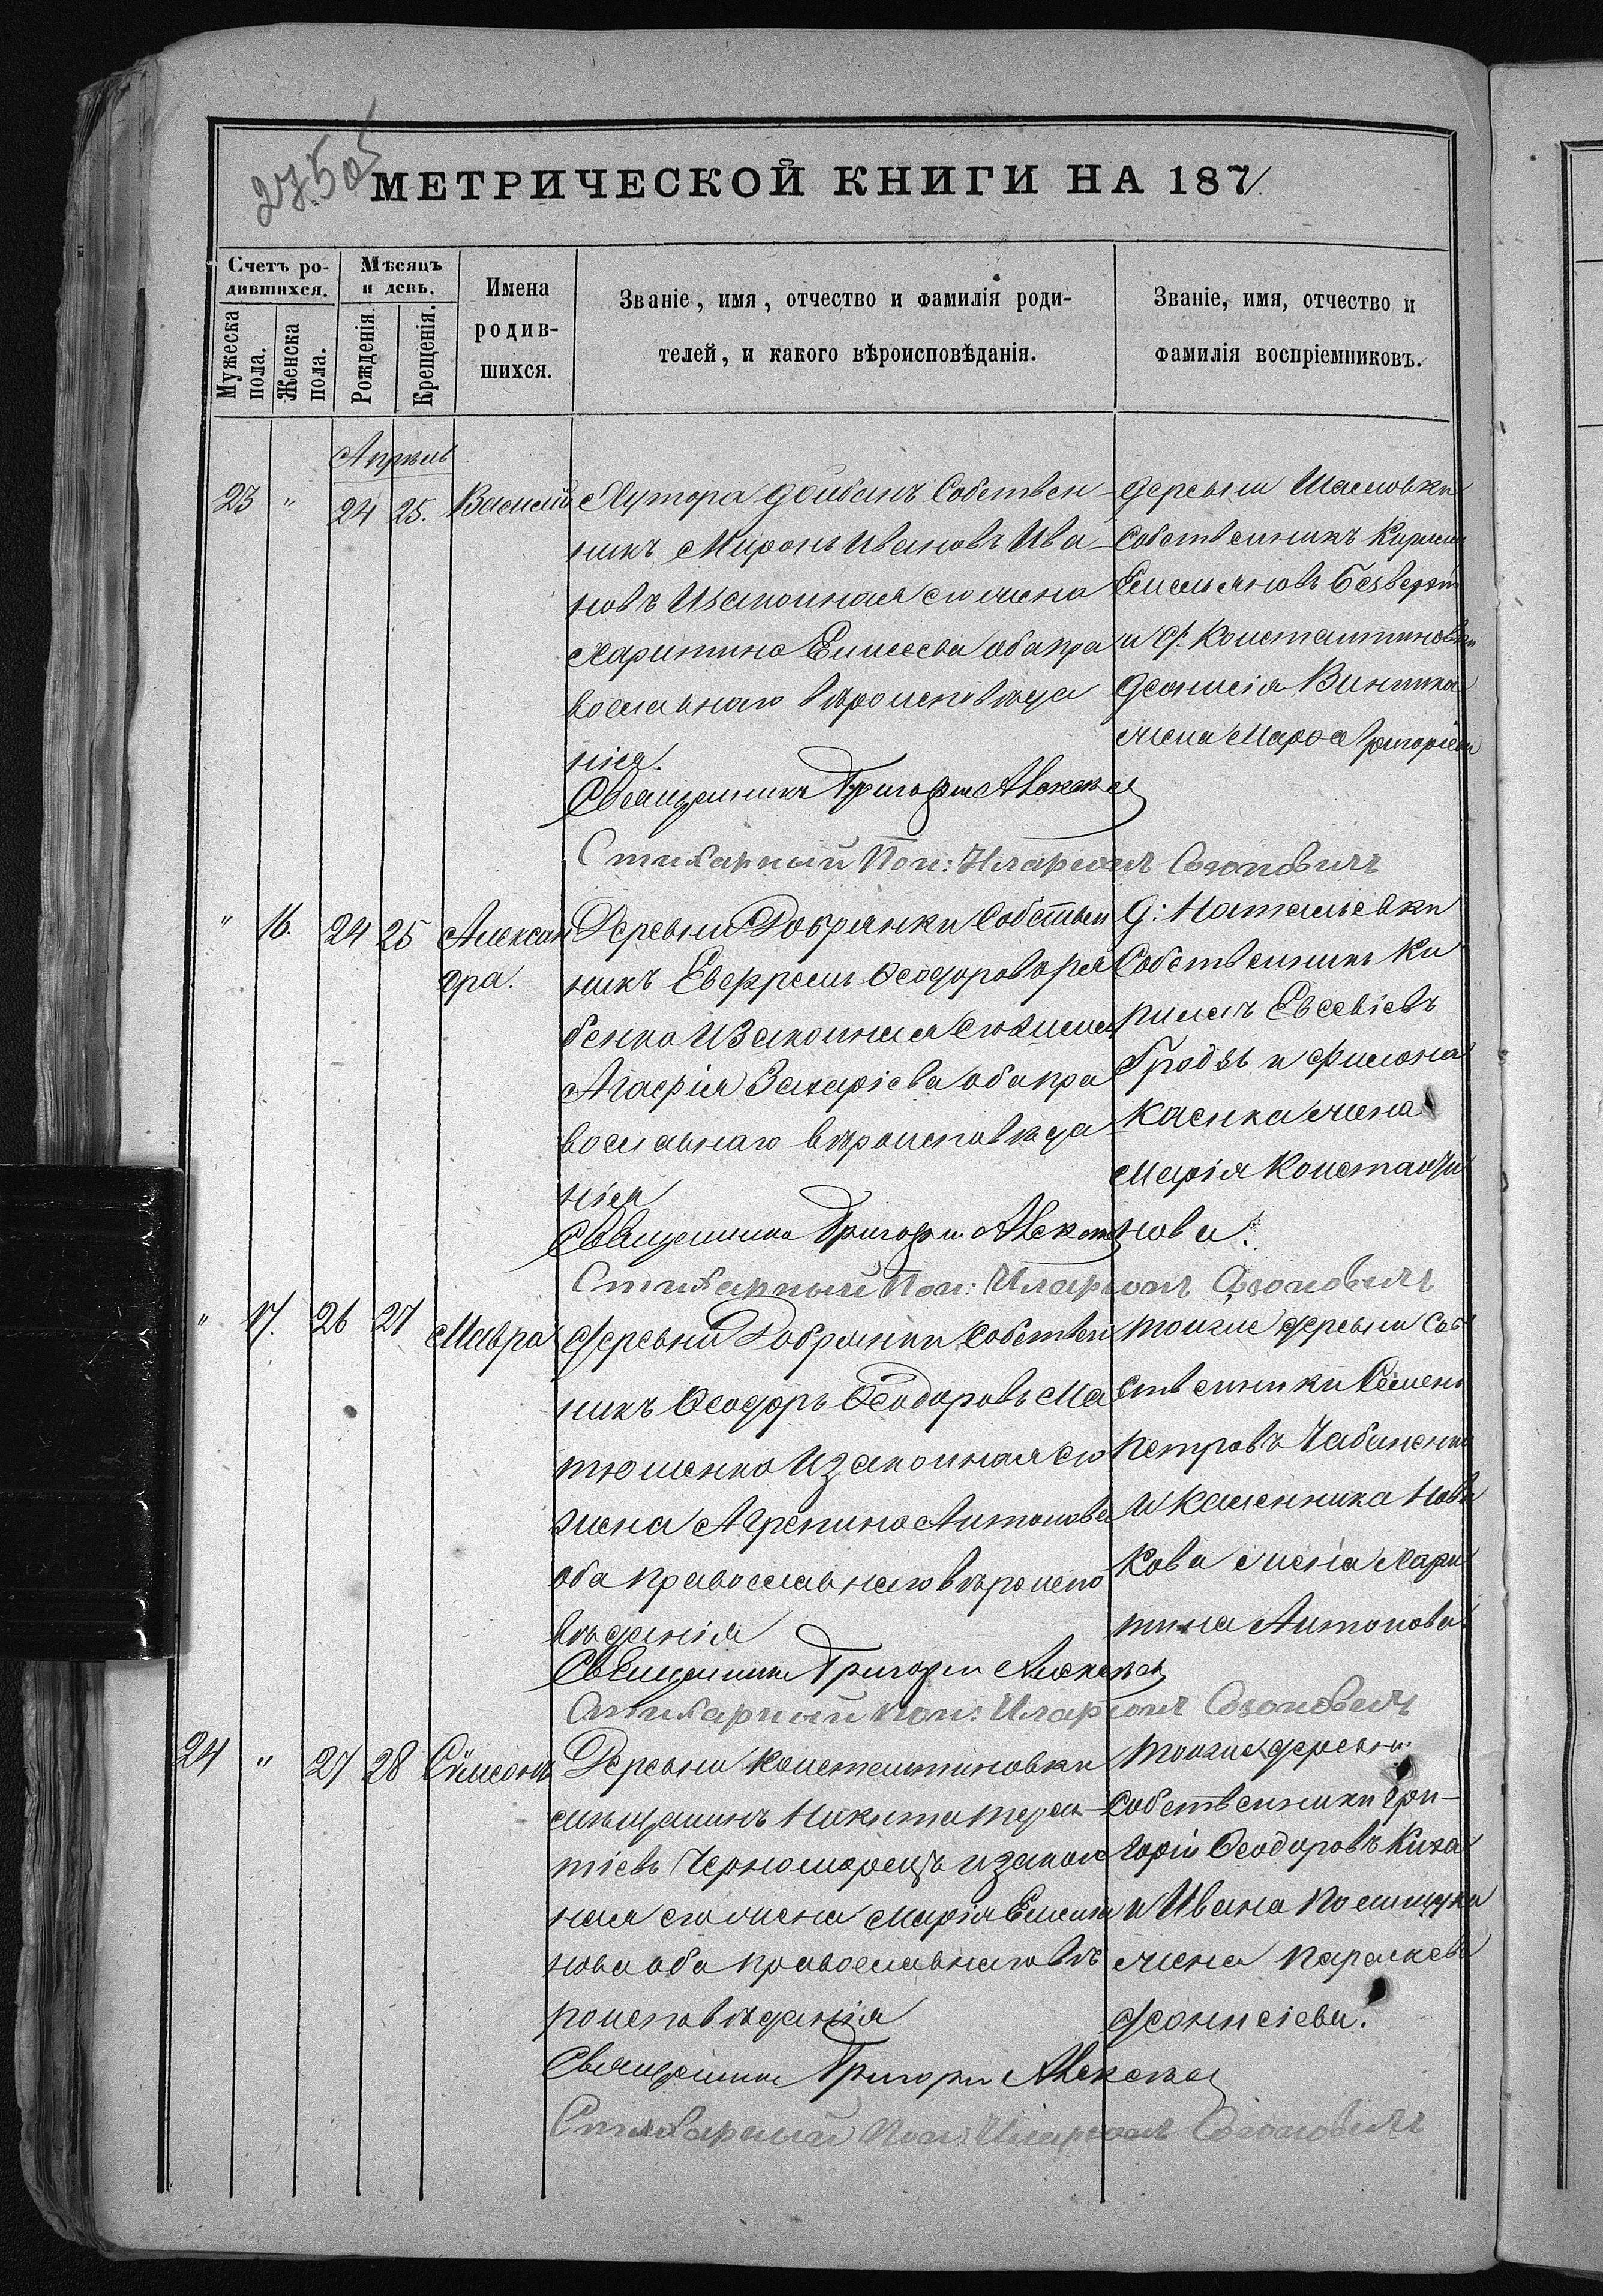 27505
МЕТРИЧЕСКОЙ КНИГИ НА 1871.
Счетъ ро-
дившихся.
Мужеска пола.
Женска пола.
Мѣсяцъ
и день.
Рожденія.
Крещенія.
Имена
родив-
шихся.
Званіе, имя, отчество и фамилія роди-
телей, и какого вѣроисповѣданія.
Званіе, имя, отчество и
фамилія воспріемниковъ.
Апрѣль
23 " 24 25. Василій
Хутора Собствен-
никъ Миронъ Ивановъ Ива-
новъ И законная его жена
Харитина Елисеева оба пра
вославнаго вѣроисповѣда
нія.
Священникъ Григорій
Стихарный Пон: Иларіонъ Созоновичъ
деревни
Собственникъ Кирилъ
Емельяновъ
и д: Константиновки
Деонисія
жена Марфа Григоріева
" 16. 24 25 Алексан
дра.
Деревни Добрянки Собствен
никъ Евфремъ Феодоровъ Ря
бенко И законная его жена
Агафія Захаріева оба пра
вославнаго вѣроисповѣда
нія
Священникъ Григорій
Стихарный Пон: Иларіонъ Созоновичъ
д: Натальевки
Собственникъ Ки
рилъ Евсевіевъ
и Филона
жена
Марія Константи
нова.
" 17. 26 27 Мавра
Деревни Добрянки Собствен
никъ Феодоръ Феодоровъ Ма
тюшенко И законная его
жена Агрепина Антонова
оба православнаго вѣроиспо
вѣданія
Священникъ Григорій
Стихарный Пон: Иларіонъ Созоновичъ
тойже деревни Соб
ственники Семенъ
Петровъ Чабаненко
и Калинника Нова
кова жена Хари
тина Антонова
24 " 27 28 Сѵмеонъ
Деревни Константиновки
мѣщанинъ Никита Терен-
тіевъ Черноморецъ и закон
ная его жена Марія Емелья
нова оба православнаго вѣ
роисповѣданія
Священникъ Григорій
Стихарный Пон: Иларіонъ Созоновичъ
тойже деревни
Собственники Гри-
горій Феодоровъ
и Ивана Полищука
жена Параскева
Деонисіева.